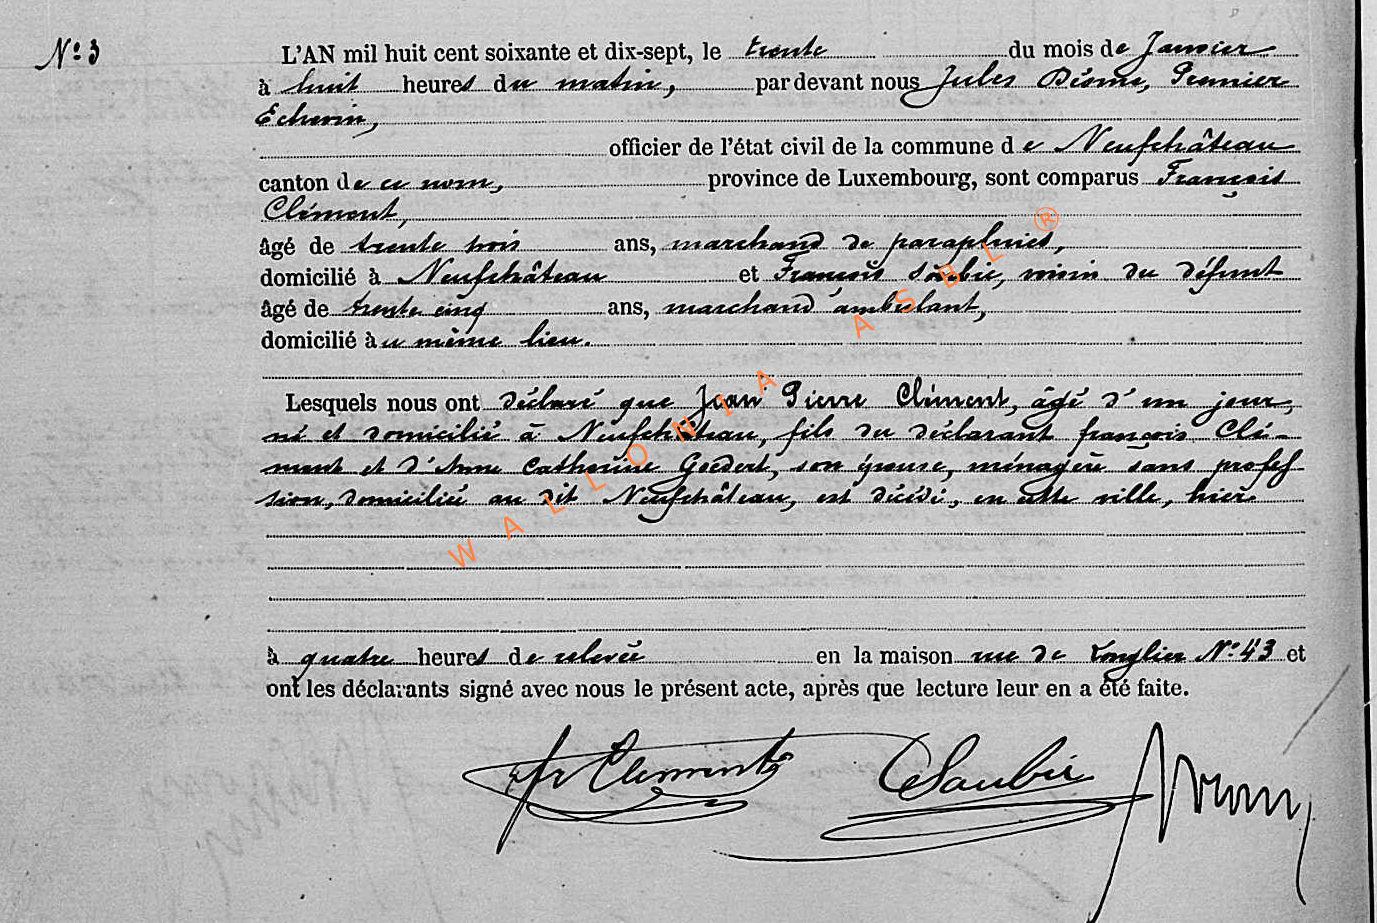 Nº 3
L'AN mil huit cent soixante et dix-sept, le trente du mois de Janvier
à huit heures du matin, par devant nous Jules Premier
Echevin,
officier de l'état civil de la commune de Neufchâteau
canton de ce nom, province de Luxembourg, sont comparus François
Clément,
âgé de trente trois ans, marchand de parapluies,
domicilié à Neufchâteau et François voisin du défunt
âgé de trente cinq ans, marchand ambulant,
domicilié au même lieu.
Lesquels nous ont déclaré que Jean Pierre Clément, âgé d'un jour,
né et domicilié à Neufchâteau, fils du déclarant françois Clé-
ment et d'Anne Catherine Goedert, son épouse, ménagère sans profes-
sion, domiciliée au dit Neufchâteau, est décédé, en cette ville, hier
à quatre heures de relevée en la maison rue de Longlier Nº 43 et
ont les déclarants signé avec nous le présent acte, après que lecture leur en a été faite.
fr Clement Saubie
WALLONIA ASBL ®